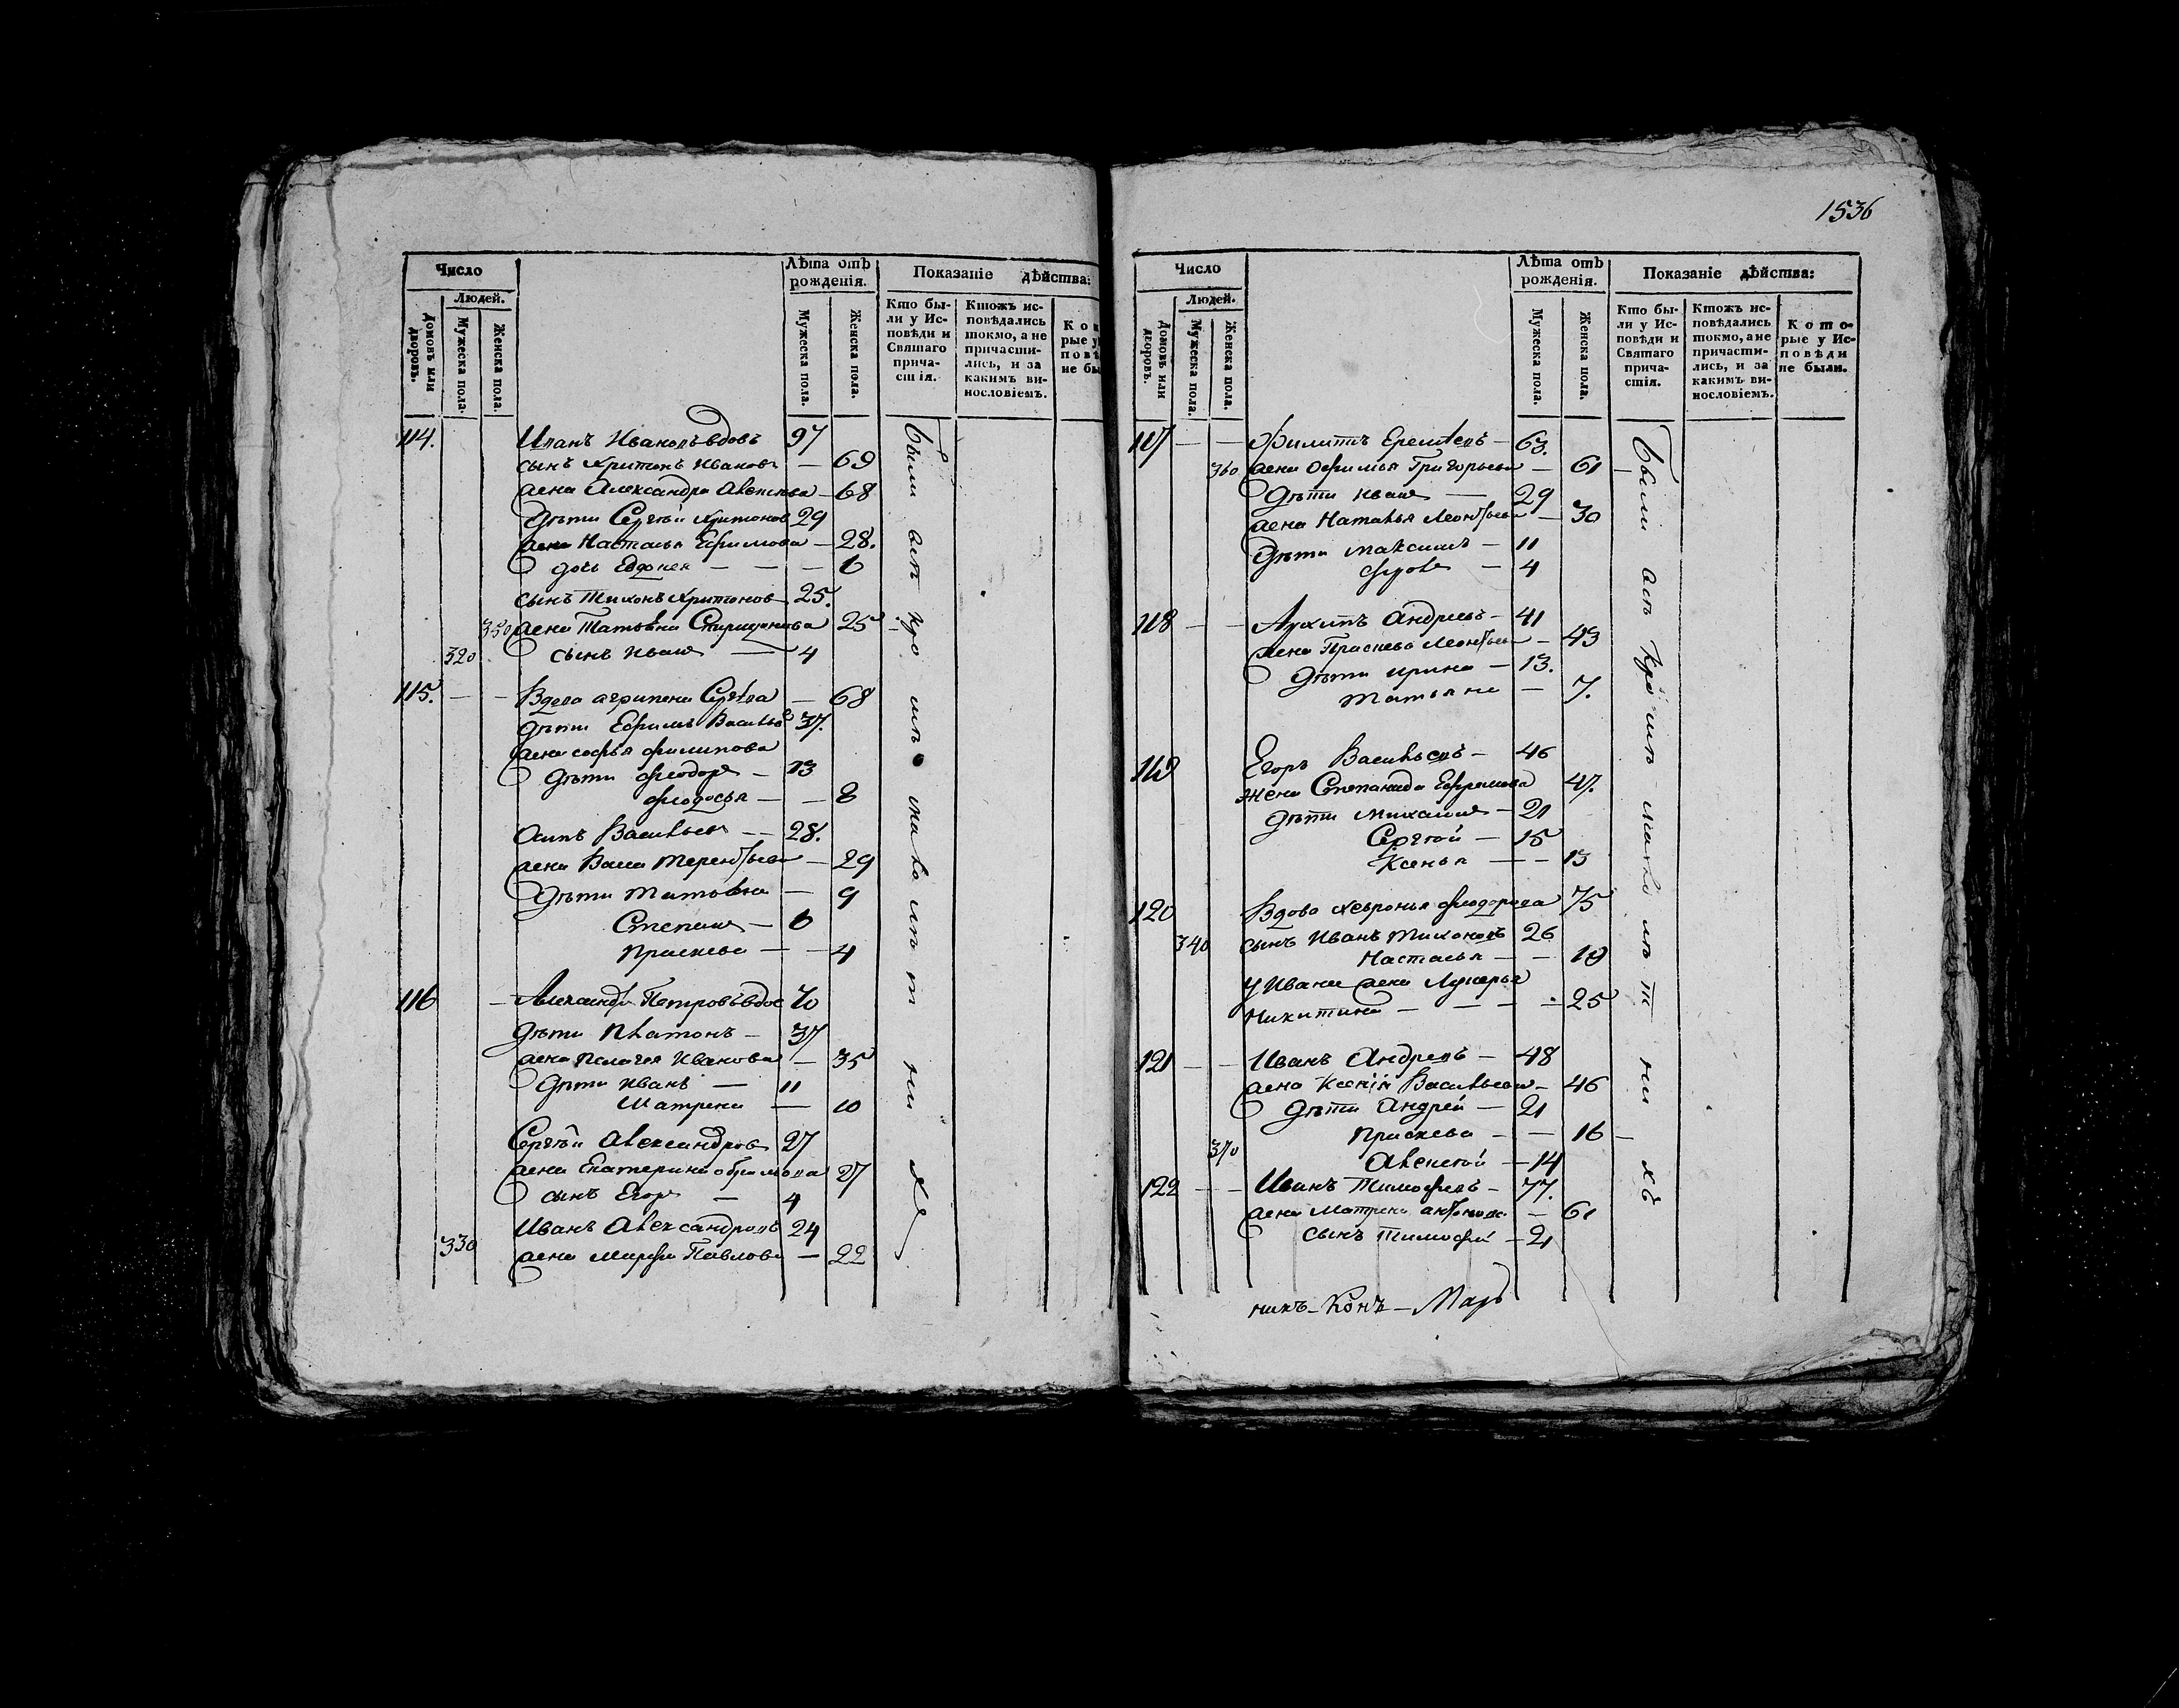 Число
Лѣта отъ рожденія.
Показаніе дѣйства:
Людей.
Домовъ или дворовъ.
Мужеска пола.
Женска пола.
Мужеска пола.
Женска пола.
Кто бы-
ли у Ис-
повѣди и
Святаго
прича-
стія.
Ктожъ ис-
повѣдались
токмо, а не
причасти-
лись, и за
какимъ ви-
нословіемъ.
114. Иванъ Ивановъ вдовъ 97
сынъ Харитонъ Ивановъ — 69
жена Александра — 68
дѣти Сергѣй Харитонов 29
жена Настасья Ефимова — 28.
дочь Евдокея — — — 6
сынъ Тихонъ Харитонов 25.
350 жена Татьяна 25
320 сынъ Иванъ — 4
115. — — Вдова Агрипена — 68
дѣти Ефимъ Василье 37.
жена софья филипова
дѣти феодоръ — 13
феодосья — — 8
Осипъ Васильевъ — — 28.
жена Терентьева — 29
дѣти Татьяна — 9
Степанъ — 6
Прасковья — — 4
116 — Александръ Петровъ вдов 70
дѣти Платонъ — 37
жена Пелагея Иванова — 35
дѣти Иванъ — 11
Матрена — 10
Сергѣй Александровъ 27
жена Екатерина 27
сынъ Егоръ — 4
Иванъ Александровъ 24
330 жена Марфа Павлова — 22
Были всѣ кро мѣ мало лѣт ни хъ
1536
Число
Лѣта отъ рожденія.
Показаніе дѣйства:
Людей.
Домовъ или дворовъ.
Мужеска пола.
Женска пола.
Мужеска пола.
Женска пола.
Кто бы-
ли у Ис-
повѣди и
Святаго
прича-
стія.
Ктожъ ис-
повѣдались
токмо, а не
причасти-
лись, и за
какимъ ви-
нословіемъ.
Кото-
рые у Ис-
повѣди
не были.
117 — — Филипъ — 63.
360 жена Офимья Григорьева — 61 —
дѣти Иванъ — 29
жена Наталья Леонтьева — 30
дѣти Максимъ — 11
— 4
118 — — Архипъ Андреевъ — 41
жена Прасковья Леонтьева — 43
дѣти ирина — 13.
Татьяна — 7.
119 Егоръ Васильевъ — 46
жена Степанида Ефремова 47.
дѣти Михаилъ — 21
Сергѣй — 15
Ксенья — — 13
120 Вдова феодорова 75
340 сынъ Иванъ Тихоновъ 26
Настасья — — 19
у Ивана жена Лукерья
Никитина — — — 25
121 — — Иванъ Андреевъ — 48
жена Ксенія Васильева — 46
дѣти Андрей — 21
Прасковья — — 16 —
370 Алексѣй — 14
122 — — Иванъ Тимофеевъ — 77.
жена Матрена — 61
сынъ Тимофей — 21
Были всѣ кро мѣ мало лѣ т ни хъ
никъ — Конъ — Мар